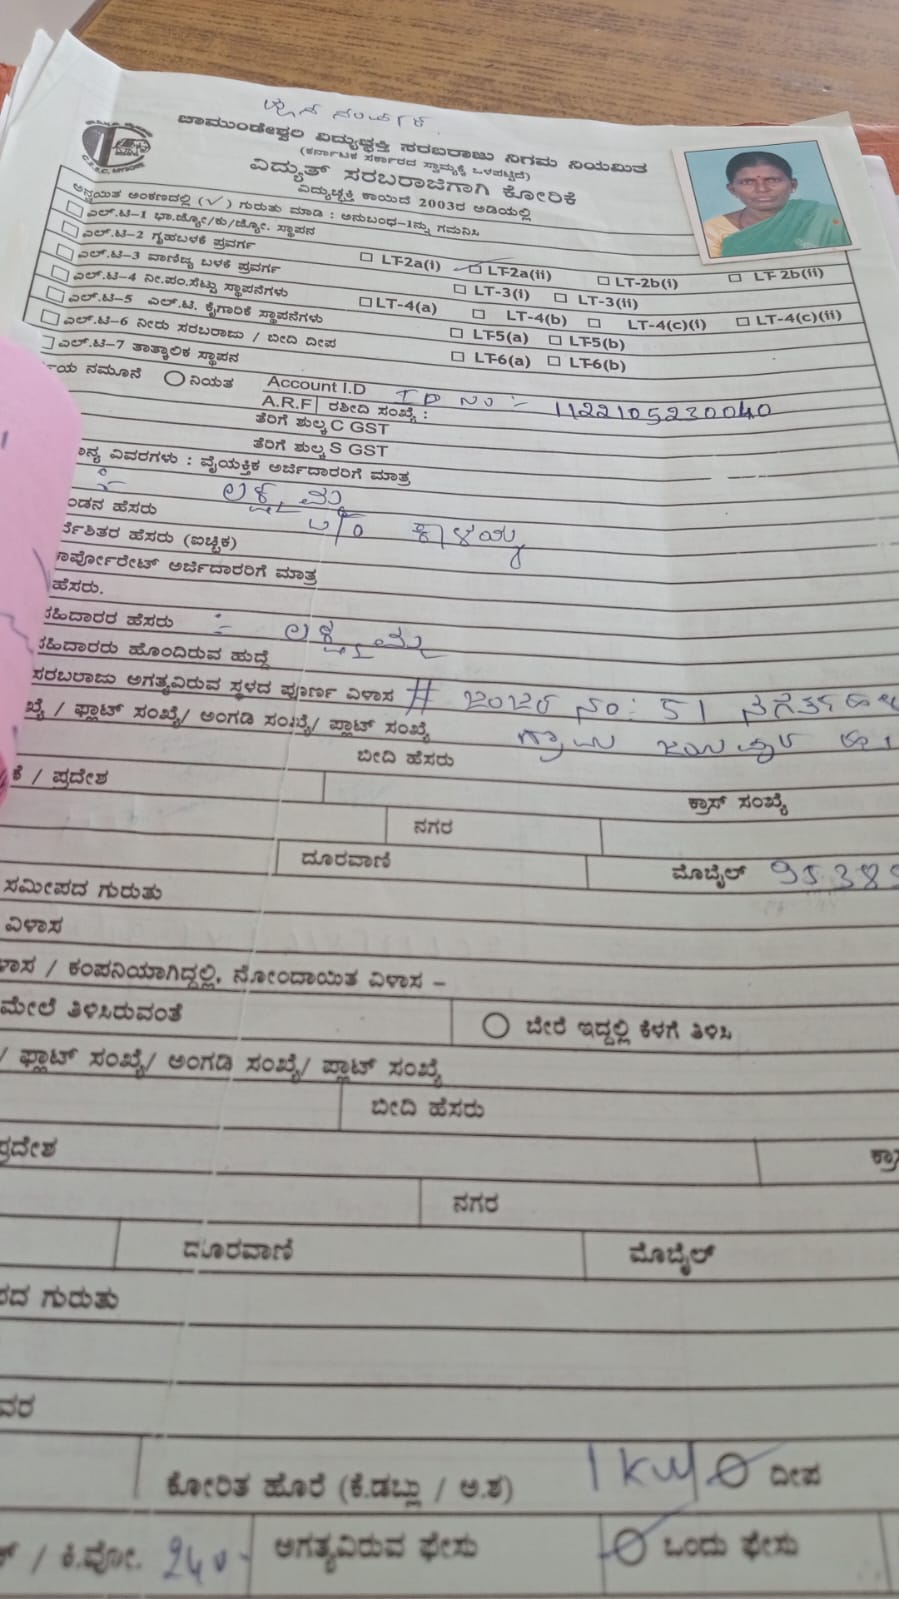 ಚಾಮುಂಡೇಶ್ವರಿ ವಿದ್ಯುಚ್ಛಕ್ತಿ ಸರಬರಾಜು ನಿಗಮ ನಿಯಮಿತ
(ಕರ್ನಾಟಕ ಸರ್ಕಾರದ ಸ್ವಾಮ್ಯಕ್ಕೆ ಒಳಪಟ್ಟಿದೆ)
ವಿದ್ಯುತ್ ಸರಬರಾಜಿಗಾಗಿ ಕೋರಿಕೆ
ವಿದ್ಯುಚ್ಛಕ್ತಿ ಕಾಯಿದೆ 2003ರ ಅಡಿಯಲ್ಲಿ
ಅನ್ವಯಿತ ಅಂಕಣದಲ್ಲಿ (✓) ಗುರುತು ಮಾಡಿ : ಅನುಬಂಧ-1ನ್ನು ಗಮನಿಸಿ
ಎಲ್.ಟಿ-1 ಭಾ.ಜ್ಯೋ/ಕು/ಜ್ಯೋ. ಸ್ಥಾಪನ
ಎಲ್.ಟಿ-2 ಗೃಹಬಳಕೆ ಪ್ರವರ್ಗ LT-2a(i) LT-2a(ii) LT-2b(i) LT-2b(ii)
ಎಲ್.ಟಿ-3 ವಾಣಿಜ್ಯ ಬಳಕೆ ಪ್ರವರ್ಗ LT-3(i) LT-3(ii)
ಎಲ್.ಟಿ-4 ನೀ.ಪಂ.ಸೆಟ್ಟು ಸ್ಥಾಪನೆಗಳು LT-4(a) LT-4(b) LT-4(c)(i) LT-4(c)(ii)
ಎಲ್.ಟಿ-5 ಎಲ್.ಟಿ. ಕೈಗಾರಿಕೆ ಸ್ಥಾಪನೆಗಳು LT-5(a) LT-5(b)
ಎಲ್.ಟಿ-6 ನೀರು ಸರಬರಾಜು / ಬೀದಿ ದೀಪ LT-6(a) LT-6(b)
ಎಲ್.ಟಿ-7 ತಾತ್ಕಾಲಿಕ ಸ್ಥಾಪನ
ಯ ನಮೂನೆ ನಿಯತ Account I.D ID NO :- 1122105230040
A.R.F ರಶೀದಿ ಸಂಖ್ಯೆ :
ತೆರಿಗೆ ಶುಲ್ಕ C GST
ತೆರಿಗೆ ಶುಲ್ಕ S GST
ನ್ಯ ವಿವರಗಳು : ವೈಯಕ್ತಿಕ ಅರ್ಜಿದಾರರಿಗೆ ಮಾತ್ರ
ಲಕ್ಷ್ಮಮ್ಮ
ಂಡನ ಹೆಸರು ಕಾಳಯ್ಯ
ರ್ದೇಶಿತರ ಹೆಸರು (ಐಚ್ಛಿಕ)
ಾರ್ಪೋರೇಟ್ ಅರ್ಜಿದಾರರಿಗೆ ಮಾತ್ರ
ಹೆಸರು.
ಸಹಿದಾರರ ಹೆಸರು :- ಲಕ್ಷ್ಮಮ್ಮ
ಸಹಿದಾರರು ಹೊಂದಿರುವ ಹುದ್ದೆ
ಸರಬರಾಜು ಅಗತ್ಯವಿರುವ ಸ್ಥಳದ ಪೂರ್ಣ ವಿಳಾಸ # ಜಂಜರ ನಂ: 51
ಖ್ಯೆ / ಫ್ಲಾಟ್ ಸಂಖ್ಯೆ/ ಅಂಗಡಿ ಸಂಖ್ಯೆ/ ಪ್ಲಾಟ್ ಸಂಖ್ಯೆ ಗ್ರಾಮ
ಬೀದಿ ಹೆಸರು
ಕೆ / ಪ್ರದೇಶ ಕ್ರಾಸ್ ಸಂಖ್ಯೆ
ನಗರ
ದೂರವಾಣಿ ಮೊಬೈಲ್ 95389
ಸಮೀಪದ ಗುರುತು
ವಿಳಾಸ
ಳಾಸ / ಕಂಪನಿಯಾಗಿದ್ದಲ್ಲಿ, ನೋಂದಾಯಿತ ವಿಳಾಸ –
ಮೇಲೆ ತಿಳಿಸಿರುವಂತೆ ಬೇರೆ ಇದ್ದಲ್ಲಿ ಕೆಳಗೆ ತಿಳಿಸಿ
/ ಫ್ಲಾಟ್ ಸಂಖ್ಯೆ/ ಅಂಗಡಿ ಸಂಖ್ಯೆ/ ಪ್ಲಾಟ್ ಸಂಖ್ಯೆ
ಬೀದಿ ಹೆಸರು
ಪ್ರದೇಶ ಕ್ರಾಸ
ನಗರ
ದೂರವಾಣಿ ಮೊಬೈಲ್
ಪದ ಗುರುತು
ವರ
ಕೋರಿತ ಹೊರೆ (ಕೆ.ಡಬ್ಲು / ಅ.ಶ) 1 KW ದೀಪ
/ ಕಿ.ವೋ. 240 ಅಗತ್ಯವಿರುವ ಫೇಸು ಒಂದು ಫೇಸು